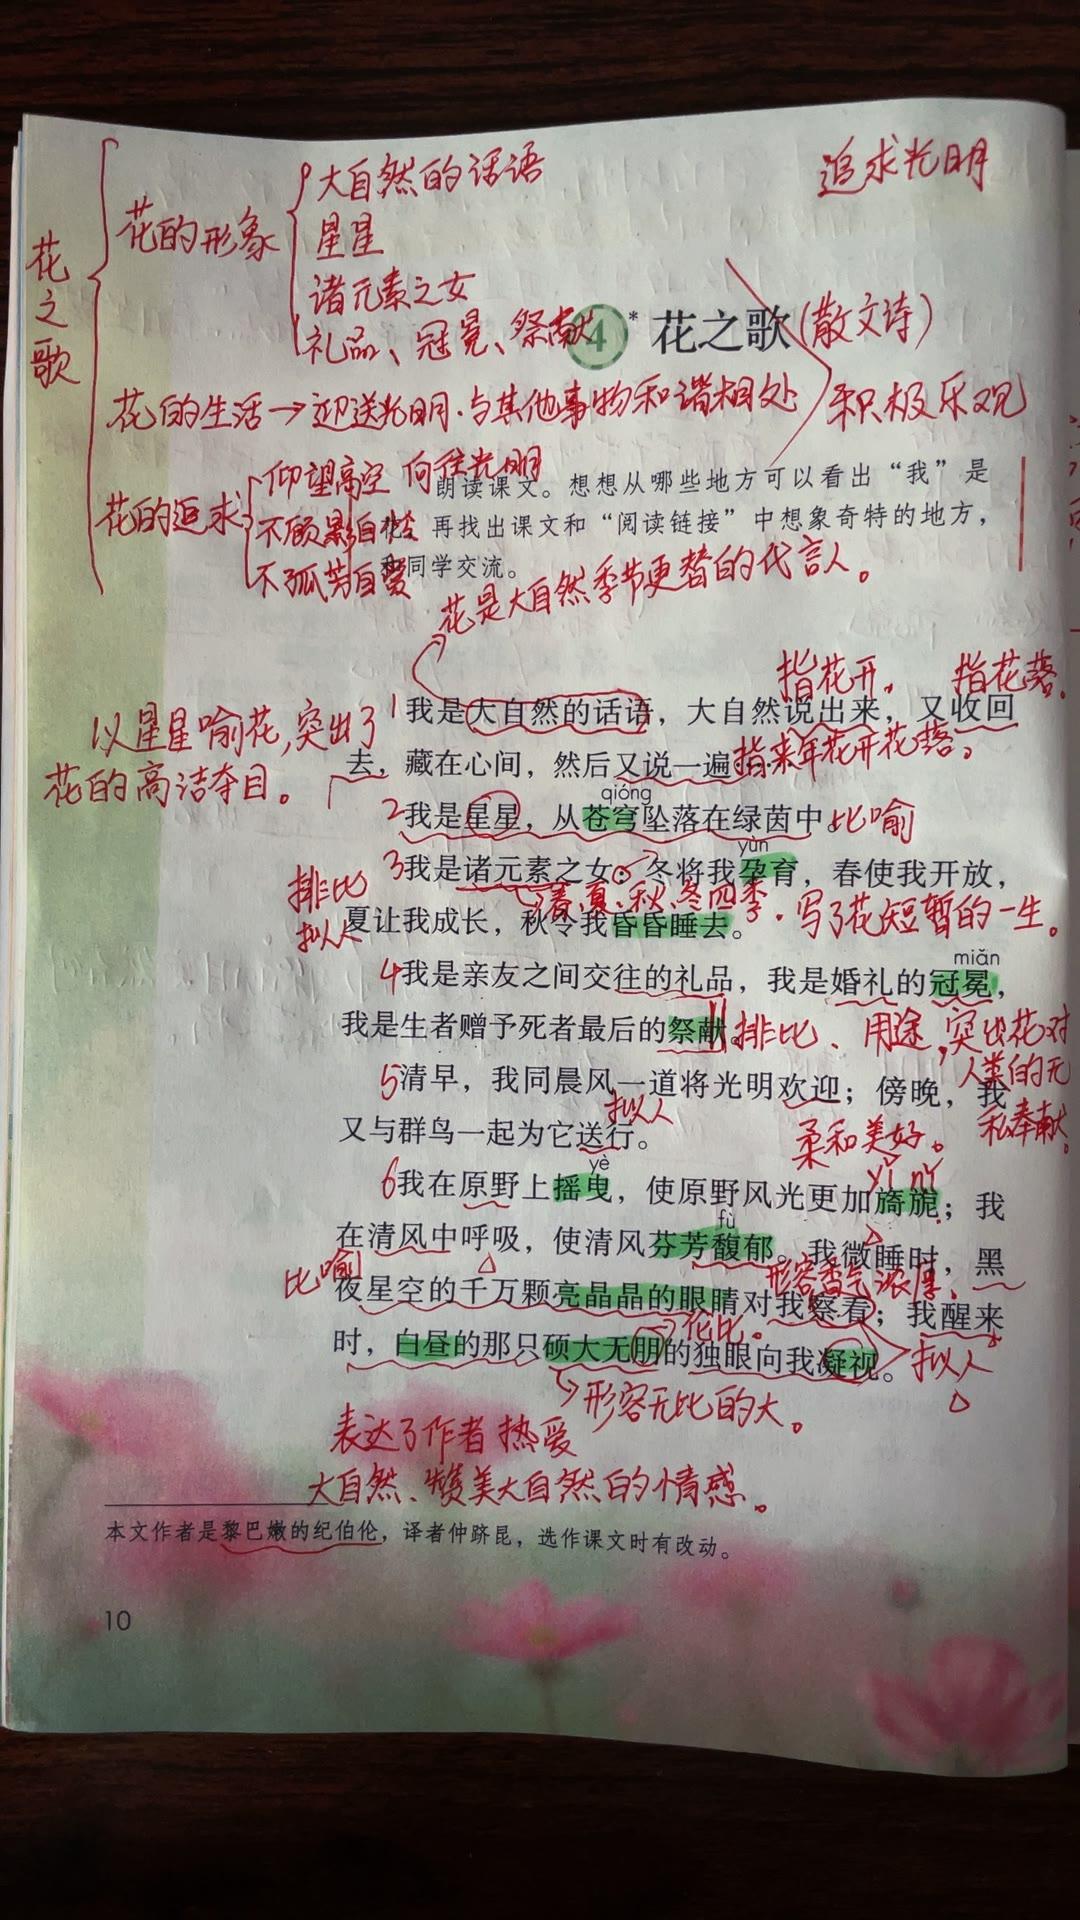 大自然的话语
追求光明
花的形象
星星
花之歌
诸元素之女
礼品、冠冕、祭献
4* 花之歌(散文诗)
花的生活→迎送光明.与其他事物和谐相处
积极乐观
仰望高空 向往光明
朗读课文。想想从哪些地方可以看出“我”是
花的追求
不顾影自怜
花。再找出课文和“阅读链接”中想象奇特的地方，
不孤芳自爱
和同学交流。
花是大自然季节更替的代言人。
指花开。 指花落。
1我是大自然的话语，大自然说出来，又收回
以星星喻花,突出了
花的高洁夺目。
去，藏在心间，然后又说一遍……
指来年花开花落。
qióng
2我是星星，从苍穹坠落在绿茵中。比喻
yùn
3我是诸元素之女：冬将我孕育，春使我开放，
排比
拟人
春、夏、秋、冬四季. 写了花短暂的一生。
夏让我成长，秋令我昏昏睡去。
miǎn
4我是亲友之间交往的礼品，我是婚礼的冠冕，
我是生者赠予死者最后的祭献。排比、用途,突出花对
人类的无
私奉献。
5清早，我同晨风一道将光明欢迎；傍晚，我
拟人
又与群鸟一起为它送行。
柔和美好。
yè
yǐ nǐ
6我在原野上摇曳，使原野风光更加旖旎；我
fù
在清风中呼吸，使清风芬芳馥郁。我微睡时，黑
比喻
形容香气浓厚.
夜星空的千万颗亮晶晶的眼睛对我察看；我醒来
伦比。
时，白昼的那只硕大无朋的独眼向我凝视。拟人
形容无比的大。
表达了作者热爱
大自然、赞美大自然的情感。
本文作者是黎巴嫩的纪伯伦，译者仲跻昆，选作课文时有改动。
10